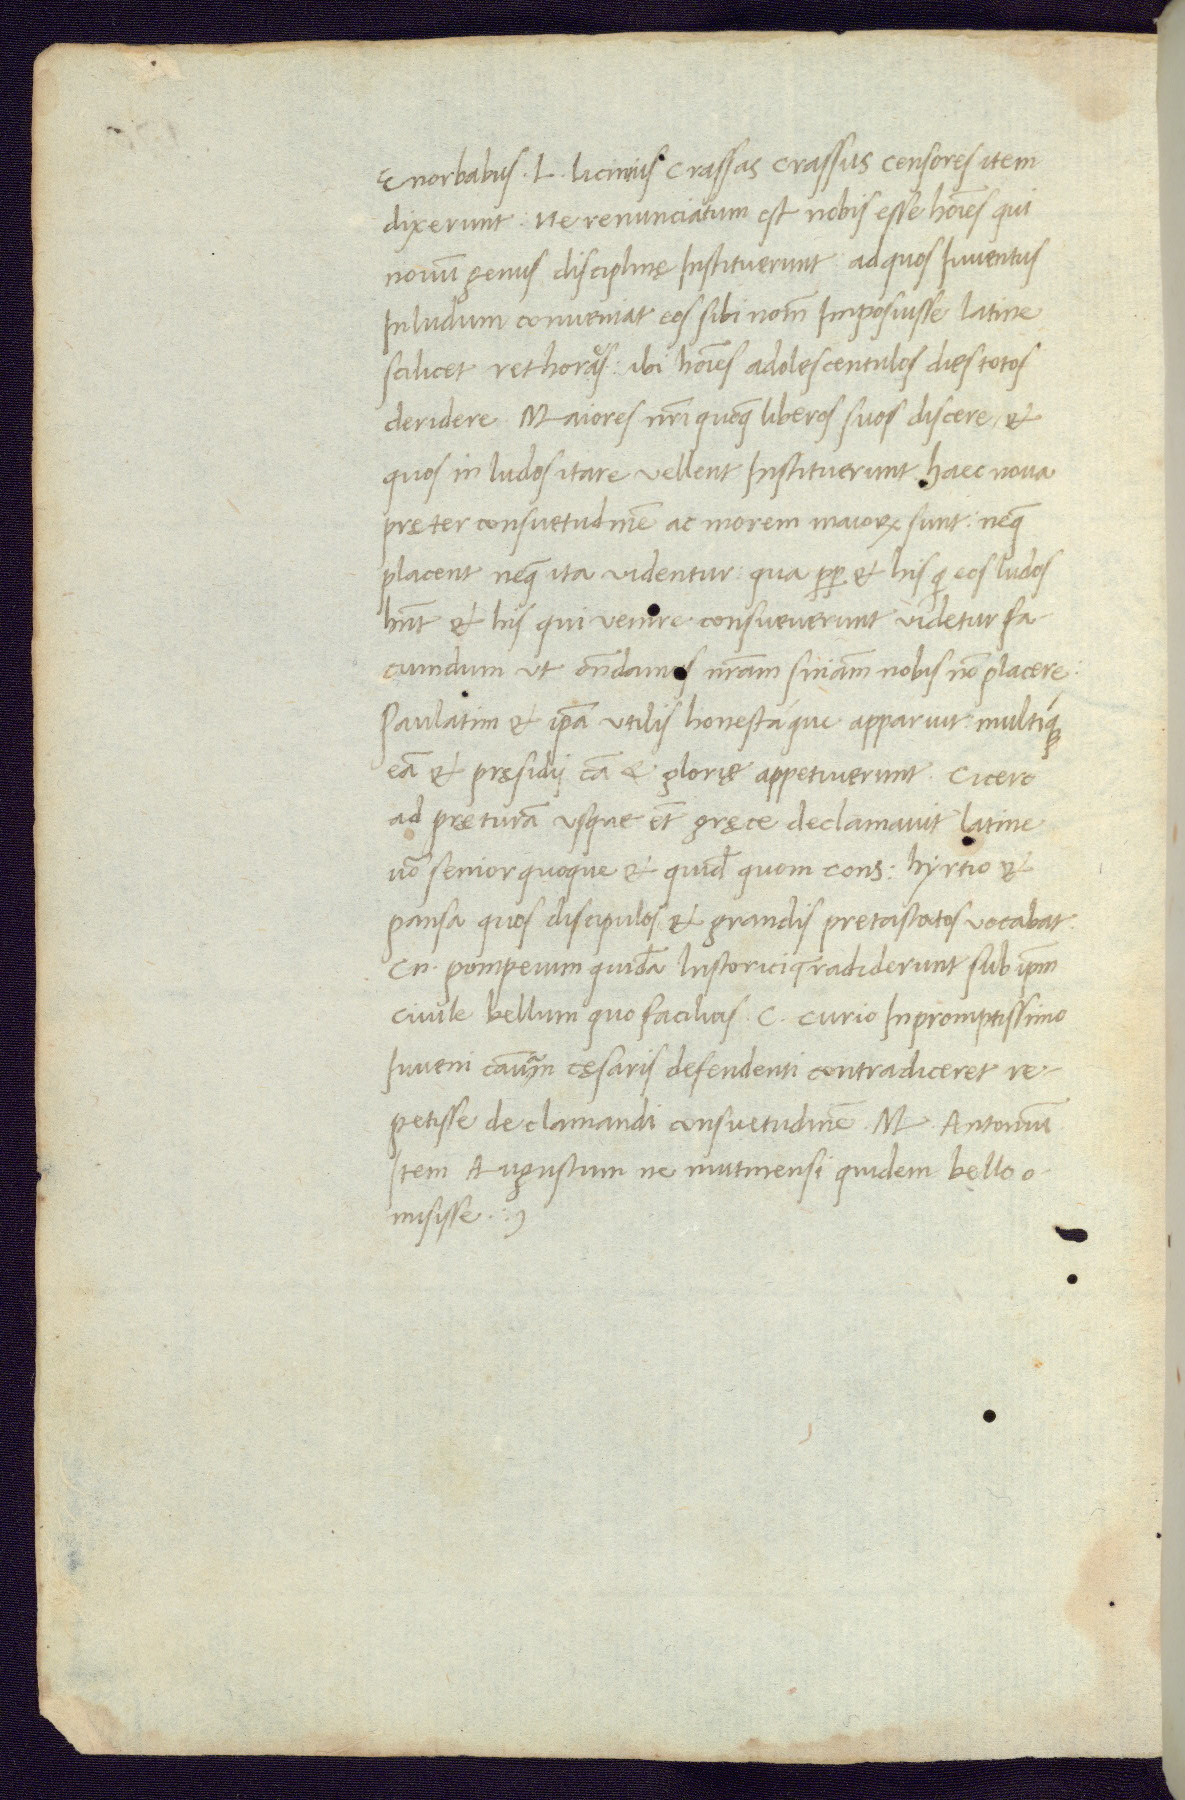 Enorbabus. L. licinius Crassas crassus censores item
dixerunt: Ne renunciatum est nobis esse hoīes qui
nouū genus disciplinę Instituerunt: ad quos Iuuentus
In ludum conueniat eos sibi nom̄ Imposiuisse latine
scilicet rethoras: ibi hoīes adolescentulos dies totos
deridere. Maiores nr̄i quoq̄ liberos suos discere, &
quos in ludos itare vellent Instituerunt haec noua
pręter consuetudinē ac morem maioꝝ sunt: neq̄
placent neq̄ ita videntur: qua & his q̄ eos ludos
hn̄t & his qui venire consueuerunt videtur fa-
ciundum ut on̄damus nr̄am sn̄iam nobis nō placere:
Paulatim & ip̄a utilis honestaque apparuit: multiq̄
eā & pręsidij cā & glorię appetiuerunt. Cicero
ad pręturā usque et̄ gręce declamauit latine
uō senior quoque & quid̄ quom cons: hyrtio &
pansa quos discipulos & grandis pretastatos vocabat.
Cn. pompeium quidā historici tradiderunt sub ip̄m
ciuile bellum quo facilius. C. curio Inpromptissimo
Iuueni cęsaris defendenti contradiceret re-
petisse declamandi consuetudinē. M. Antoniū
Item Augustum ne mutinensi quidem bello o-
misisse. :)